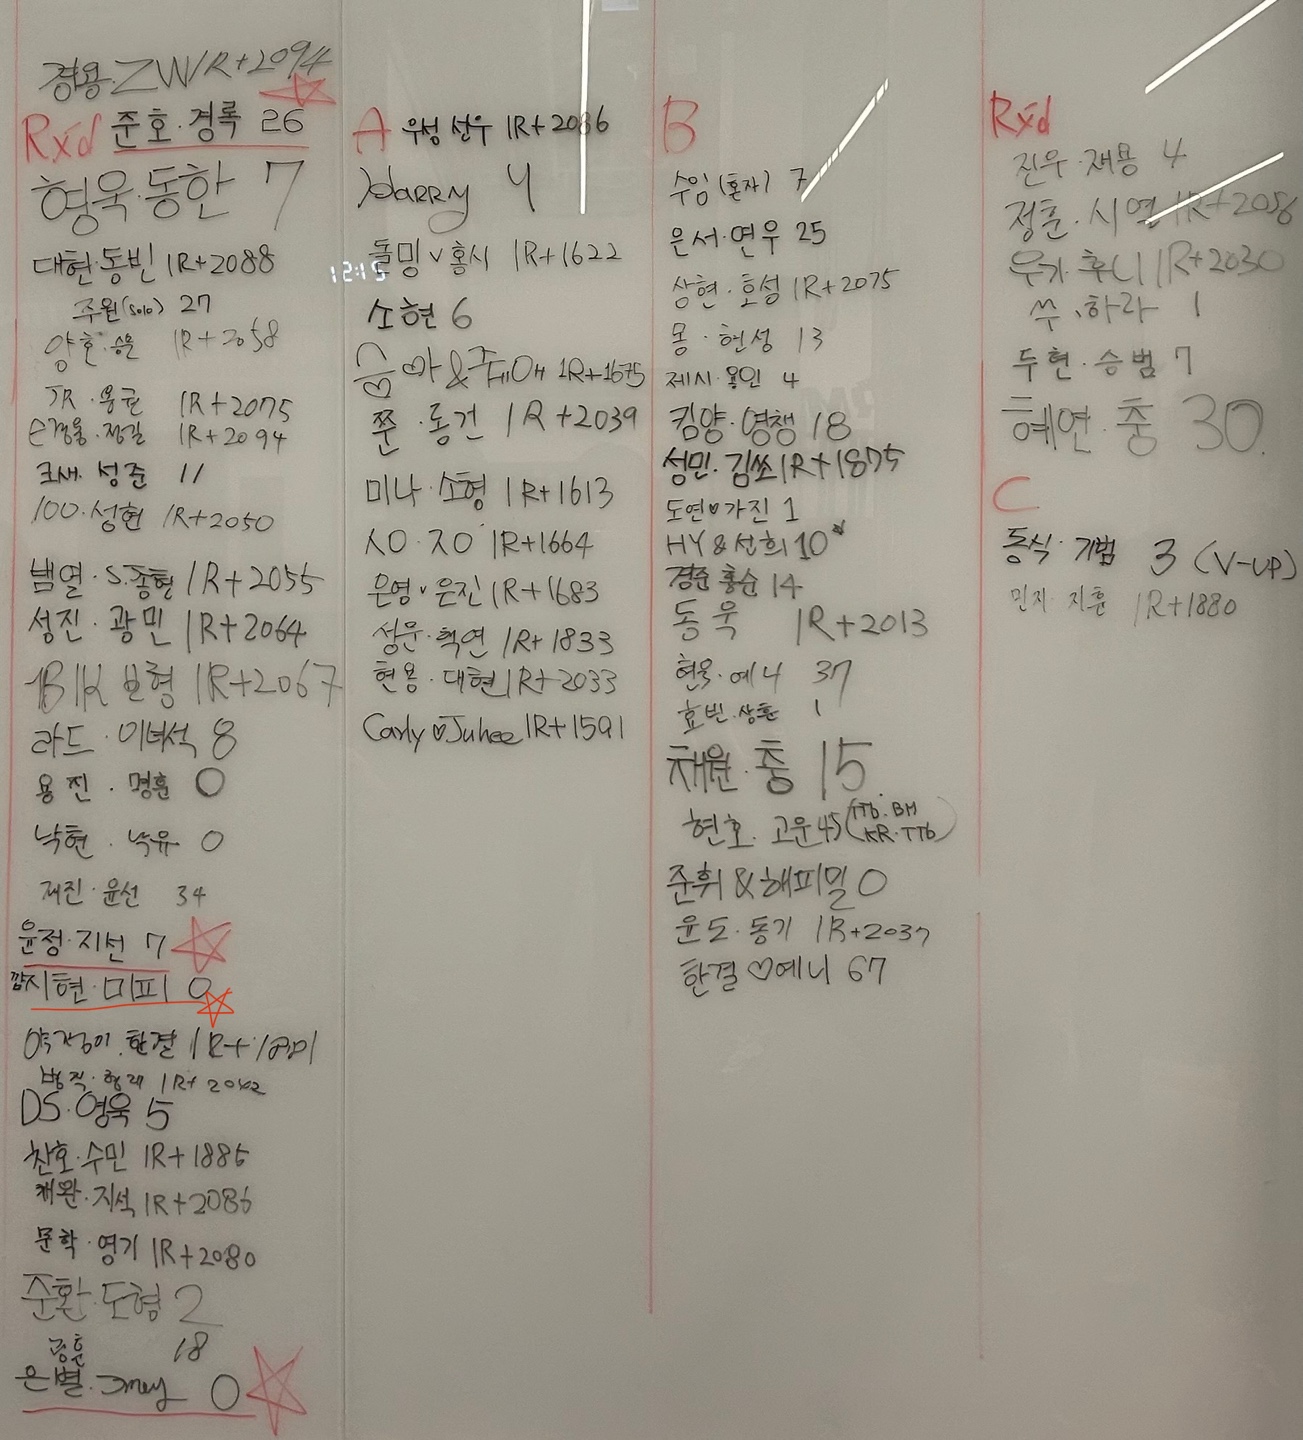 경용·ZW 1R+2094
Rxd 준호·경록 26
형욱·동한 7
대현·동빈 1R+2088
주원(solo) 27
양호·승윤 1R+2058
JR·용권 1R+2075
손경율·정길 1R+2094
크새·성준 11
100·성현 1R+2050
뱀열·S.종형 1R+2055
성진·광민 1R+2064
1B1K 보형 1R+2067
라드·이녀석 8
용진·명훈 0
낙현·낙유 0
재진·윤선 34
윤정·지선 7
깜지현·미피 0
한결
1R+2042
DS·영욱 5
찬호·수민 1R+1885
채완·지석 1R+2086
문학·영기 1R+2080
준환·도형 2
18
은별·Jmey 0
A 우성 선우 1R+2086
Harry 4
돌밍 v 홍시 1R+1622
12:15
소현 6
슴♡아&쥬디애 1R+1675
쭌·동건 1R+2039
미나·소형 1R+1613
ㅅㅇ·ㅈㅇ 1R+1664
은영 v 은진 1R+1683
성운·혁연 1R+1833
현용·대현 1R+2033
Carly ♡ Juhee 1R+1591
B
수임 (혼자) 7
은서·연우 25
상현·호성 1R+2075
몽·헌성 13
제시·용인 4
킴양·영챙 18
성민·김쏘 1R+1875
도연♡가진 1
HY & 선희 10
경준 홍순 14
동욱 1R+2013
현욱·예나 37
효빈·상훈 1
채원·충 15
현호·고운 45 (TTb·BH
KR·TTb)
준휘 & 해피밀 0
윤도·동기 1R+2037
한결♡예니 67
Rxd
진우·재용 4
정훈·시열 1R+2056
우기·후니 1R+2030
쑤·하라 1
두현·승범 7
혜연·충 30
C
동식·기범 3 (V-UP)
민지·지훈 1R+1880